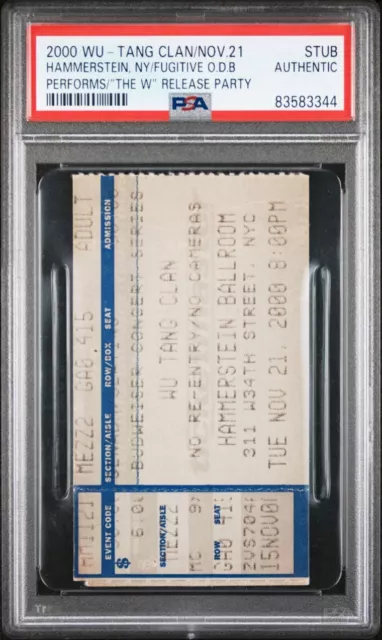 2000 WU - TANG CLAN/NOV.21 STUB
HAMMERSTEIN, NY/FUGITIVE O.D.B AUTHENTIC
PERFORMS/"THE W" RELEASE PARTY 83583344
PSA
MEZZ2 GA0 415 ADULT
EVENT CODE SECTION/AISLE ROW/BOX SEAT ADMISSION
$ BUDWEISER CONCERT SERIES
SECTION/AISLE WU TANG CLAN
MEZZ2 NO RE-ENTRY/NO CAMERAS
HAMMERSTEIN BALLROOM
ROW SEAT 311 W34TH STREET, NYC
GA0 41 TUE NOV 21, 2000 8:00PM
2VS704
15NOV0